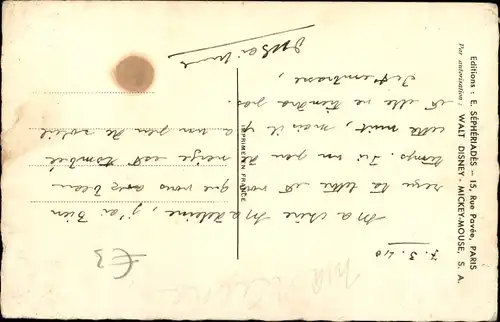 Editions : E. SÉPHÉRIADÈS - 15, Rue Pavée, PARIS
Par autorisation : WALT DISNEY - MICKEY-MOUSE, S. A.
IMPRIMÉ EN FRANCE
7. 3. 40
Ma chère Madeleine, j'ai bien
reçu ta lettre et vois
que vous avez beau
temps. Ici un peu de
neige est tombée
cette nuit, mais il y
a un peu de soleil
et elle ne tiendra pas.
Je t'embrasse,
Madeleine
€3